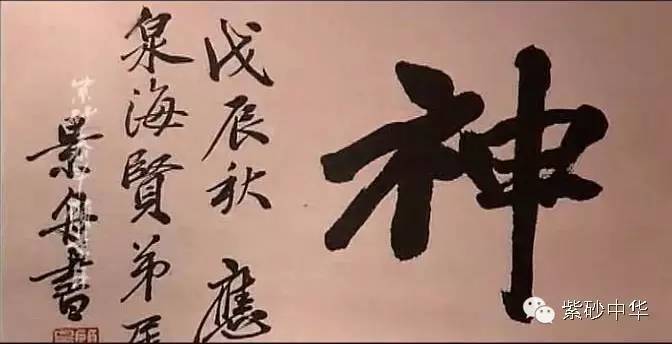 神
戊辰秋 應
泉海賢弟屬
景舟書
紫砂中华